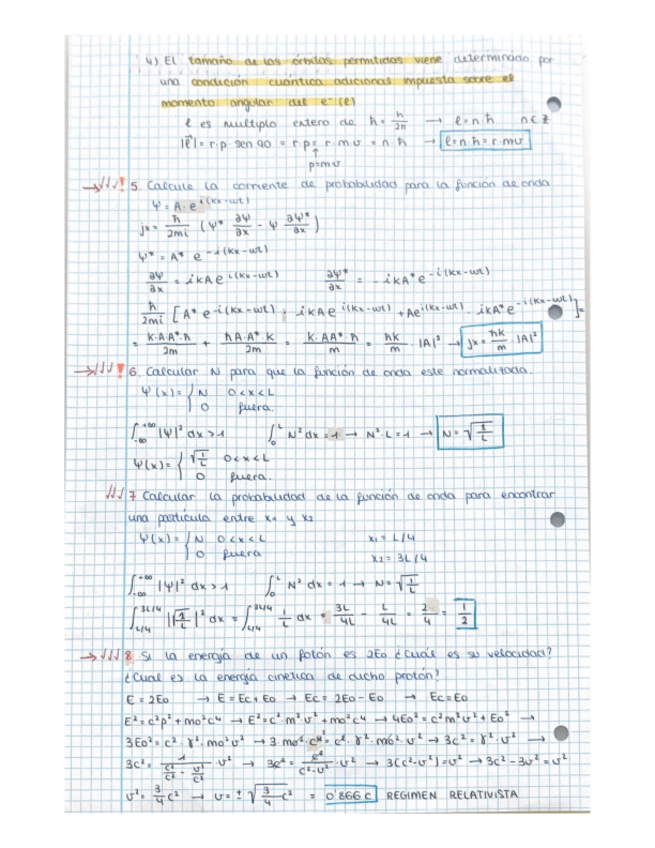 4) El tamaño de las órbidas permitidas viene determinado por
una condición cuántica adicional impuesta sobre el
momento angular del e⁻ (ℓ)
ℓ es multiplo entero de ħ = h/2π → ℓ = n·ħ n∈Z
|ℓ⃗| = r·p sen 90 = r·p = r·mv = n·ħ → ℓ = n·ħ = r·mv
p=mv
→ √√√! 5. Calcule la corriente de probabilidad para la función de onda
Ψ = A·e^i(kx-wt)
jx = ħ/2mi (Ψ* ∂Ψ/∂x - Ψ ∂Ψ*/∂x)
Ψ* = A* e^-i(kx-wt)
∂Ψ/∂x = ikAe^i(kx-wt) ∂Ψ*/∂x = -ikA*e^-i(kx-wt)
ħ/2mi [A* e^-i(kx-wt) · ikAe^i(kx-wt) + Ae^i(kx-wt) · ikA*e^-i(kx-wt)] =
= k·A·A*·ħ/2m + ħA·A*·k/2m = k·AA*·ħ/m = ħk/m · |A|² → jx = ħk/m · |A|²
→ √√√! 6. Calcular N para que la función de onda este normalizada.
Ψ(x) = { N 0<x<L
0 fuera.
∫-∞^+∞ |Ψ|² dx > 1 ∫0^L N² dx = 1 → N²·L = 1 → N = √1/L
Ψ(x) = { √1/L 0<x<L
0 fuera.
√√√ 7 Calcular la probabilidad de la función de onda para encontrar
una partícula entre x1 y x2
Ψ(x) = { N 0<x<L x1 = L/4
0 fuera x2 = 3L/4
∫-∞^+∞ |Ψ|² dx > 1 ∫0^L N² dx = 1 → N = √1/L
∫L/4^3L/4 |√1/L|² dx = ∫L/4^3L/4 1/L dx = 3L/4L - L/4L = 2/4 = 1/2
→ √√√ 8 Si la energía de un fotón es 2E0 ¿Cuál es su velocidad?
¿Cual es la energía cinetica de dicho protón?
E = 2E0 → E = Ec + E0 → Ec = 2E0 - E0 → Ec = E0
E² = c²p² + m0²c⁴ → E² = c²·m²v² + m0²c⁴ → 4E0² = c²m²v² + E0² →
3E0² = c²·γ²·m0²v² → 3·m0²·c⁴ = c²·γ²·m0²·v² → 3c² = γ²·v² →
3c² = 1/(c²/c² - v²/c²)·v² → 3c² = c²/(c²-v²)·v² → 3(c²-v²) = v² → 3c² - 3v² = v²
v² = 3/4 c² → v = ±√3/4 c² = 0'866 c REGIMEN RELATIVISTA